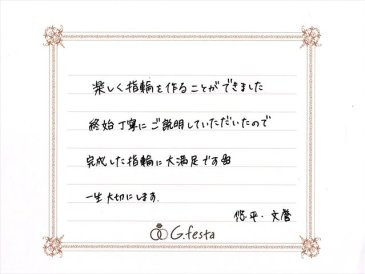 楽しく指輪を作ることができました
終始丁寧にご説明していただいたので
完成した指輪に大満足です
一生大切にします.
悠平・文誉
G.festa